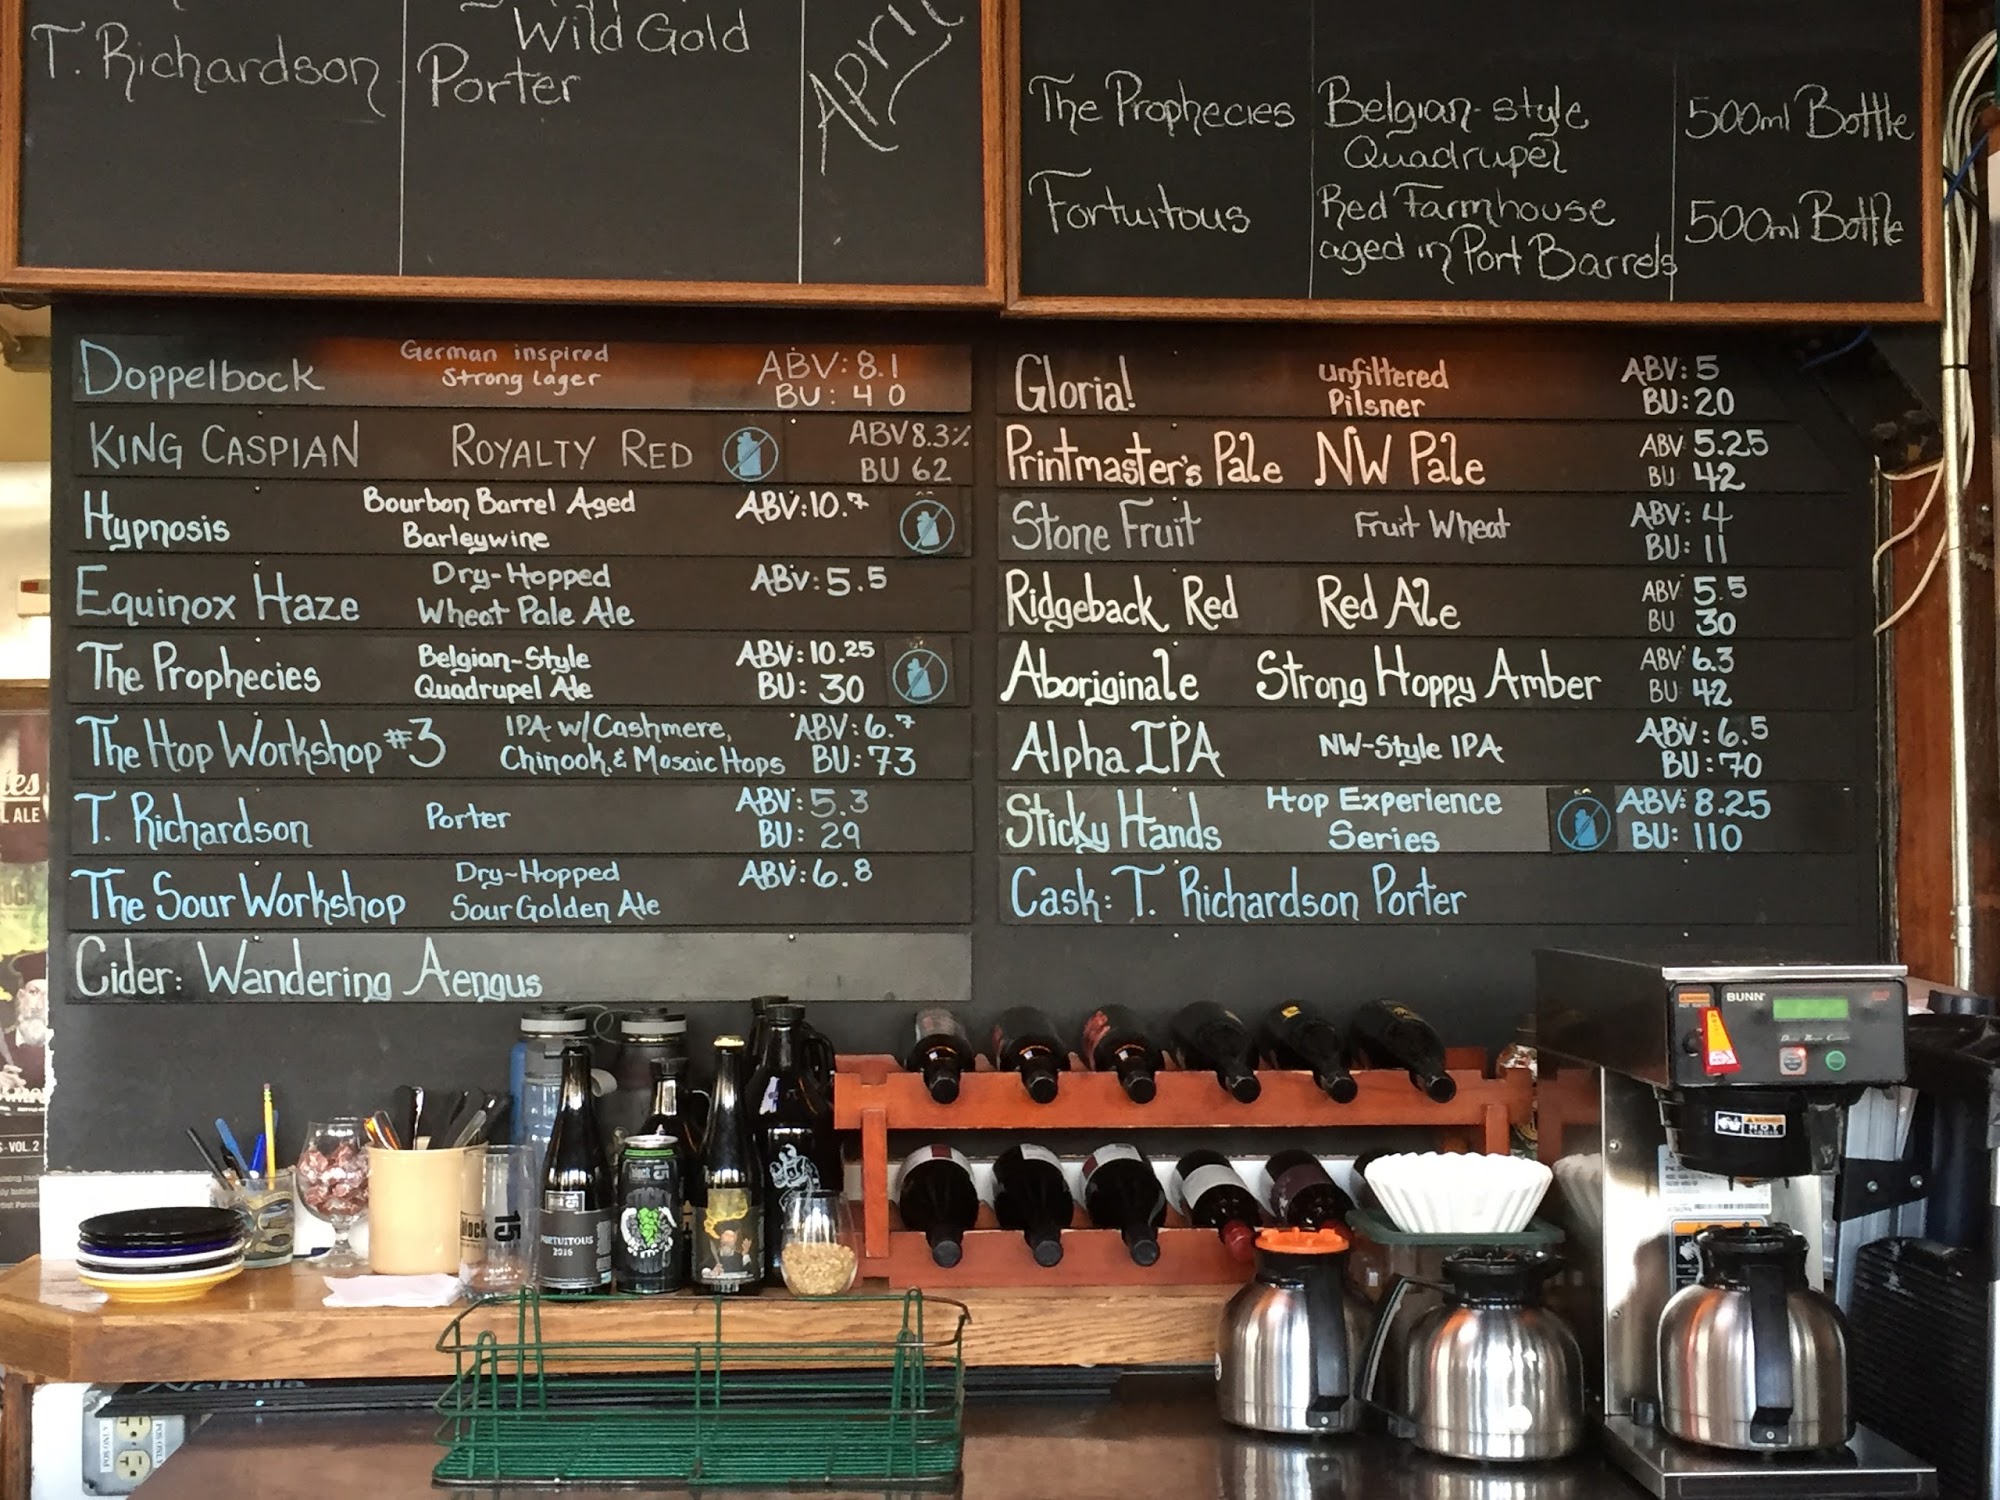 Wild Gold
T. Richardson
Porter
April
The Prophecies
Belgian-style
Quadrupel
500ml Bottle
Fortuitous
Red Farmhouse
aged in Port Barrels
500ml Bottle
Doppelbock
German inspired
Strong Lager
ABV: 8.1
BU: 40
KING CASPIAN
ROYALTY RED
ABV 8.3%
BU 62
Hypnosis
Bourbon Barrel Aged
Barleywine
ABV: 10.7
Equinox Haze
Dry-Hopped
Wheat Pale Ale
ABV: 5.5
The Prophecies
Belgian-Style
Quadrupel Ale
ABV: 10.25
BU: 30
The Hop Workshop #3
IPA w/Cashmere,
Chinook & Mosaic Hops
ABV: 6.7
BU: 73
T. Richardson
Porter
ABV: 5.3
BU: 29
The Sour Workshop
Dry-Hopped
Sour Golden Ale
ABV: 6.8
Cider: Wandering Aengus
Gloria!
unfiltered
Pilsner
ABV: 5
BU: 20
Printmaster's Pale
NW Pale
ABV 5.25
BU 42
Stone Fruit
Fruit Wheat
ABV: 4
BU: 11
Ridgeback Red
Red Ale
ABV 5.5
BU 30
Aboriginale
Strong Hoppy Amber
ABV 6.3
BU 42
Alpha IPA
NW-Style IPA
ABV: 6.5
BU: 70
Sticky Hands
Hop Experience
Series
ABV: 8.25
BU: 110
Cask: T. Richardson Porter
L ALE
VOL. 2
BUNN
HOT
block
15
FORTUITOUS
2016
Nebula